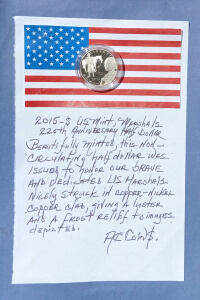 2015-S US Mint, Marshals
225th Anniversary Half Dollar
Beautifully minted, this Non-
Circulating half dollar was
issued to honor our brave
and dedicated US Marshals
Nicely struck in copper-nickel
copper clad, giving a luster
and a frost relief to images
depicted.
AC Coin$.